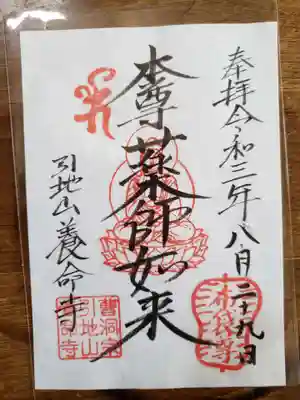 奉拝 令和三年八月二十九日
本尊薬師如来
引地山養命寺
曹洞宗
引地山
養命寺